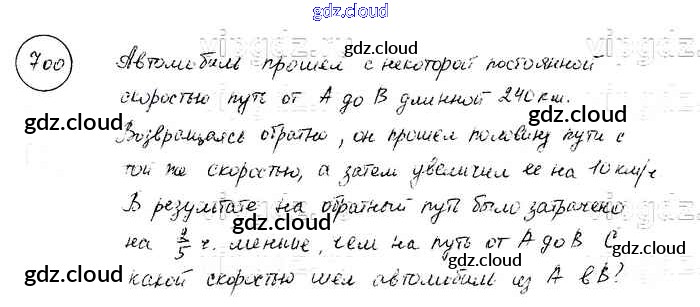 gdz.cloud
gdz.cloud
700 Автомобиль прошел с некоторой постоянной
скоростью путь от А до В длинной 240 км.
gdz.cloud
gdz.cloud
Возвращаясь обратно, он прошел половину пути с
той же скоростью, а затем увеличил ее на 10 км/ч
gdz.cloud
gdz.cloud
В результате на обратный путь было затрачено
gdz.cloud
на 2/5 ч. меньше, чем на путь от А до В С
gdz.cloud
gdz.cloud
какой скоростью шел автомобиль из А в В?
gdz.cloud